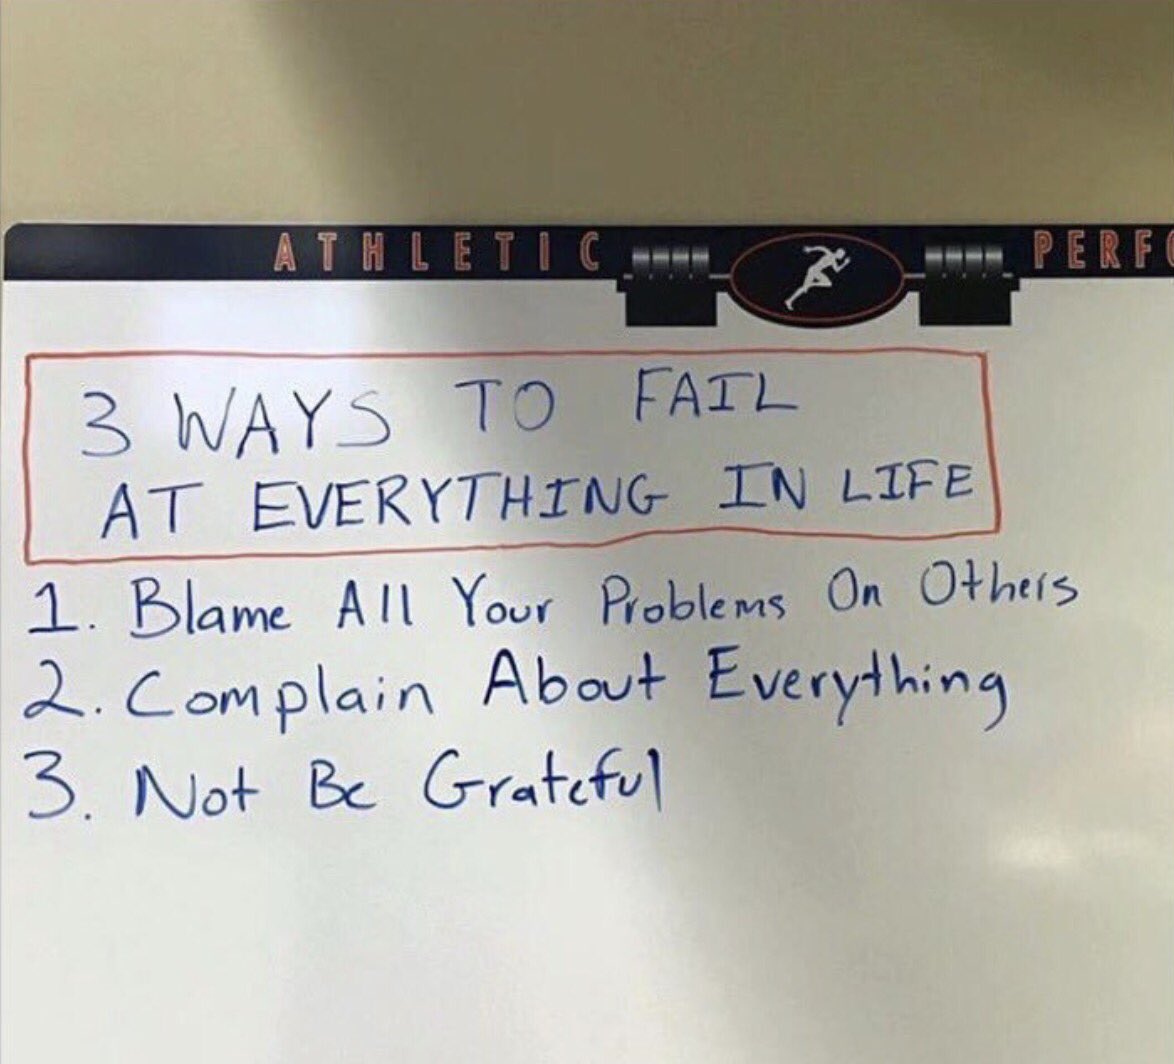 ATHLETIC PERFO
3 WAYS TO FAIL
AT EVERYTHING IN LIFE
1. Blame All Your Problems On Others
2. Complain About Everything
3. Not Be Grateful